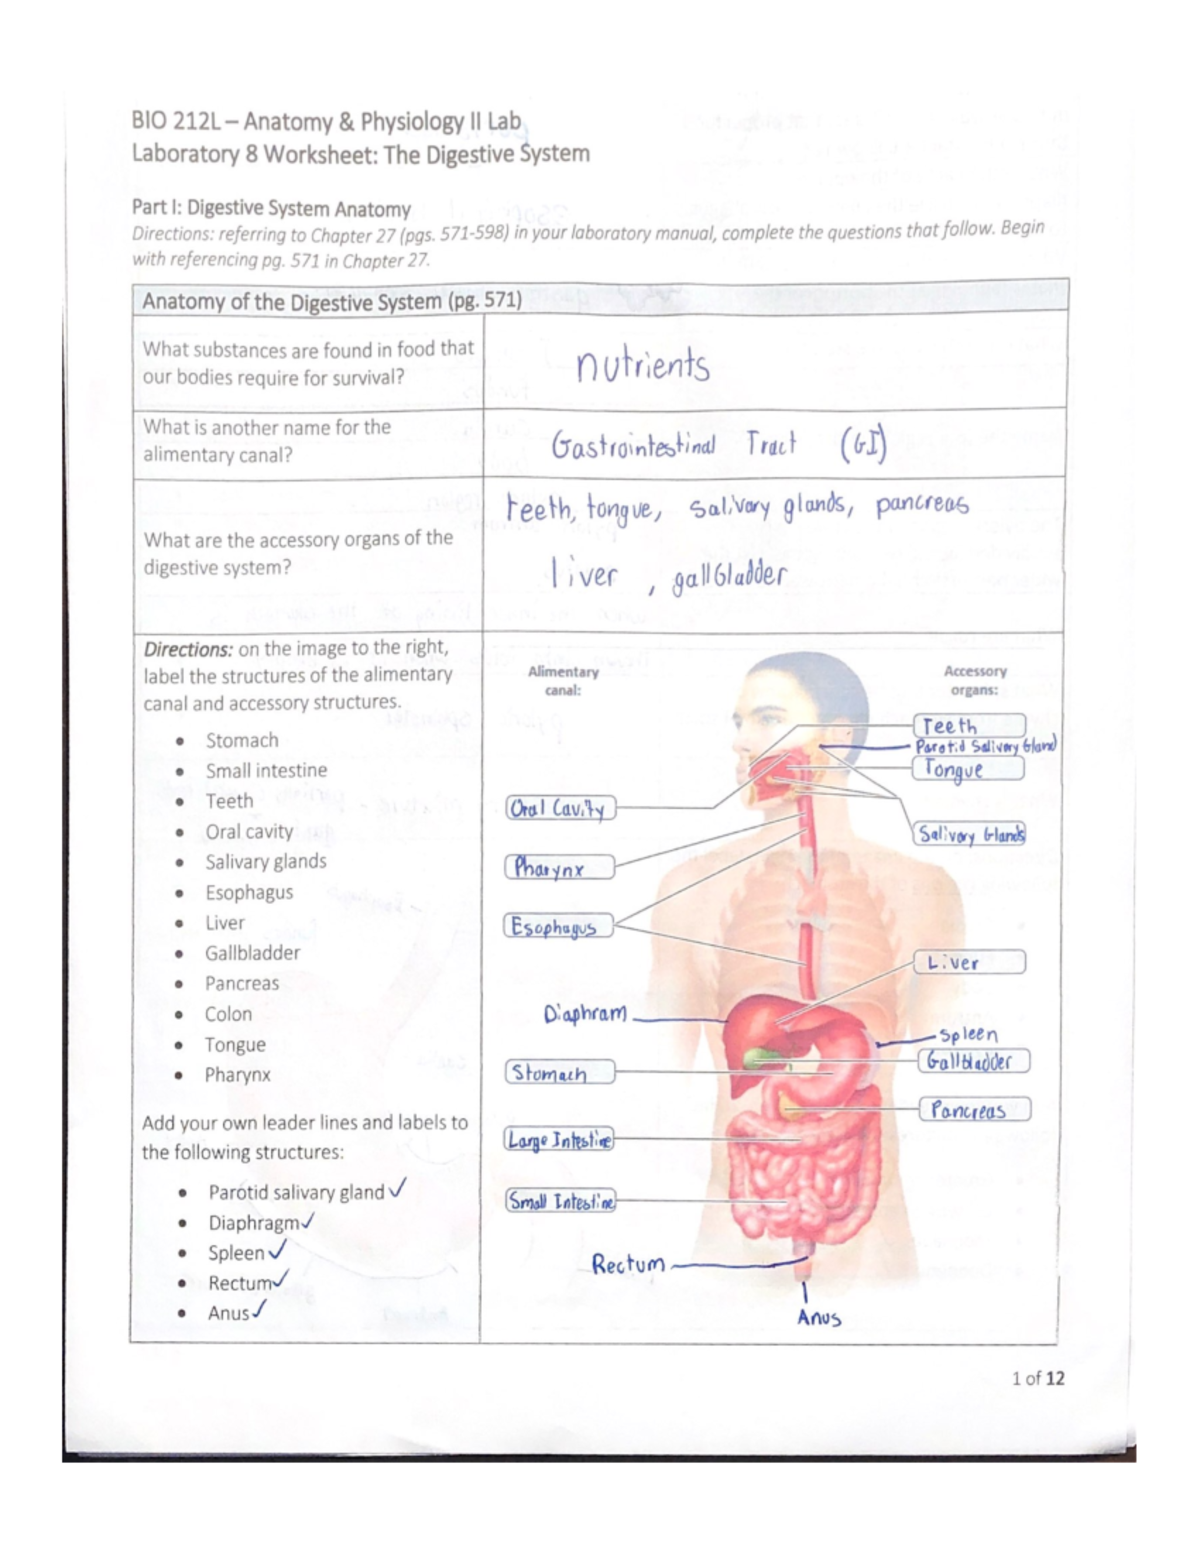 BIO 212L – Anatomy & Physiology II Lab
Laboratory 8 Worksheet: The Digestive System
Part I: Digestive System Anatomy
Directions: referring to Chapter 27 (pgs. 571-598) in your laboratory manual, complete the questions that follow. Begin
with referencing pg. 571 in Chapter 27.
Anatomy of the Digestive System (pg. 571)
What substances are found in food that
our bodies require for survival?
nutrients
What is another name for the
alimentary canal?
Gastrointestinal Tract (GI)
What are the accessory organs of the
digestive system?
teeth, tongue, salivary glands, pancreas
liver , gallbladder
Directions: on the image to the right,
label the structures of the alimentary
canal and accessory structures.
• Stomach
• Small intestine
• Teeth
• Oral cavity
• Salivary glands
• Esophagus
• Liver
• Gallbladder
• Pancreas
• Colon
• Tongue
• Pharynx
Add your own leader lines and labels to
the following structures:
• Parotid salivary gland ✓
• Diaphragm ✓
• Spleen ✓
• Rectum ✓
• Anus ✓
Alimentary
canal:
Accessory
organs:
Teeth
Parotid Salivary Gland
Tongue
Oral Cavity
Salivary Glands
Pharynx
Esophagus
Liver
Diaphram
Spleen
Gallbladder
Stomach
Pancreas
Large Intestine
Small Intestine
Rectum
Anus
1 of 12